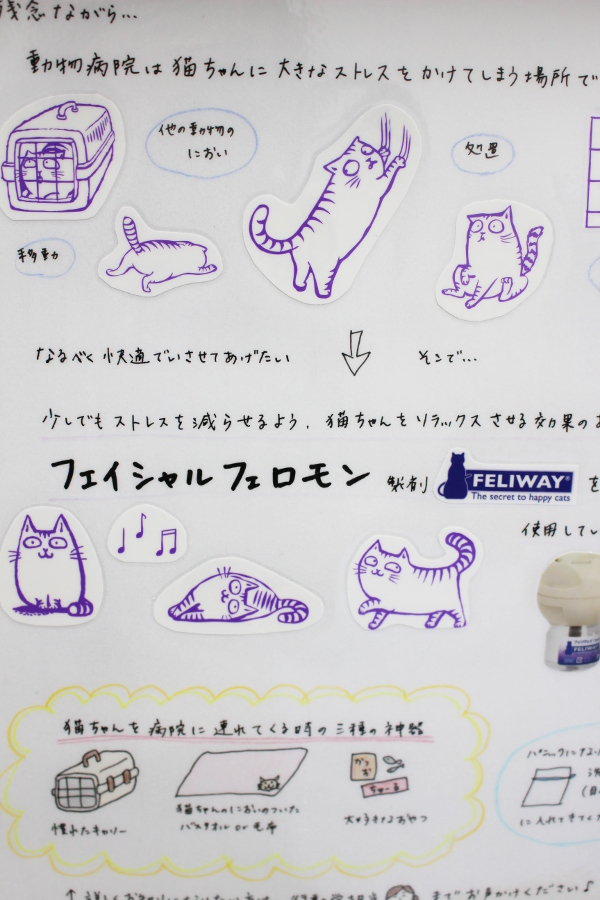 残念ながら...
動物病院は猫ちゃんに大きなストレスをかけてしまう場所で
他の動物の
におい
処置
移動
なるべく快適でいさせてあげたい
そこで...
少しでもストレスを減らせるよう、猫ちゃんをリラックスさせる効果の
フェイシャルフェロモン 製剤 FELIWAY を
The secret to happy cats
使用してい
FELIWAY
猫ちゃんを病院に連れてくる時の三種の神器
かつお
ちゅーる
慣れたキャリー
猫ちゃんのにおいのついた
バスタオル or 毛布
大好きなおやつ
パニックになり
に入れてきてく
までお声かけください♪